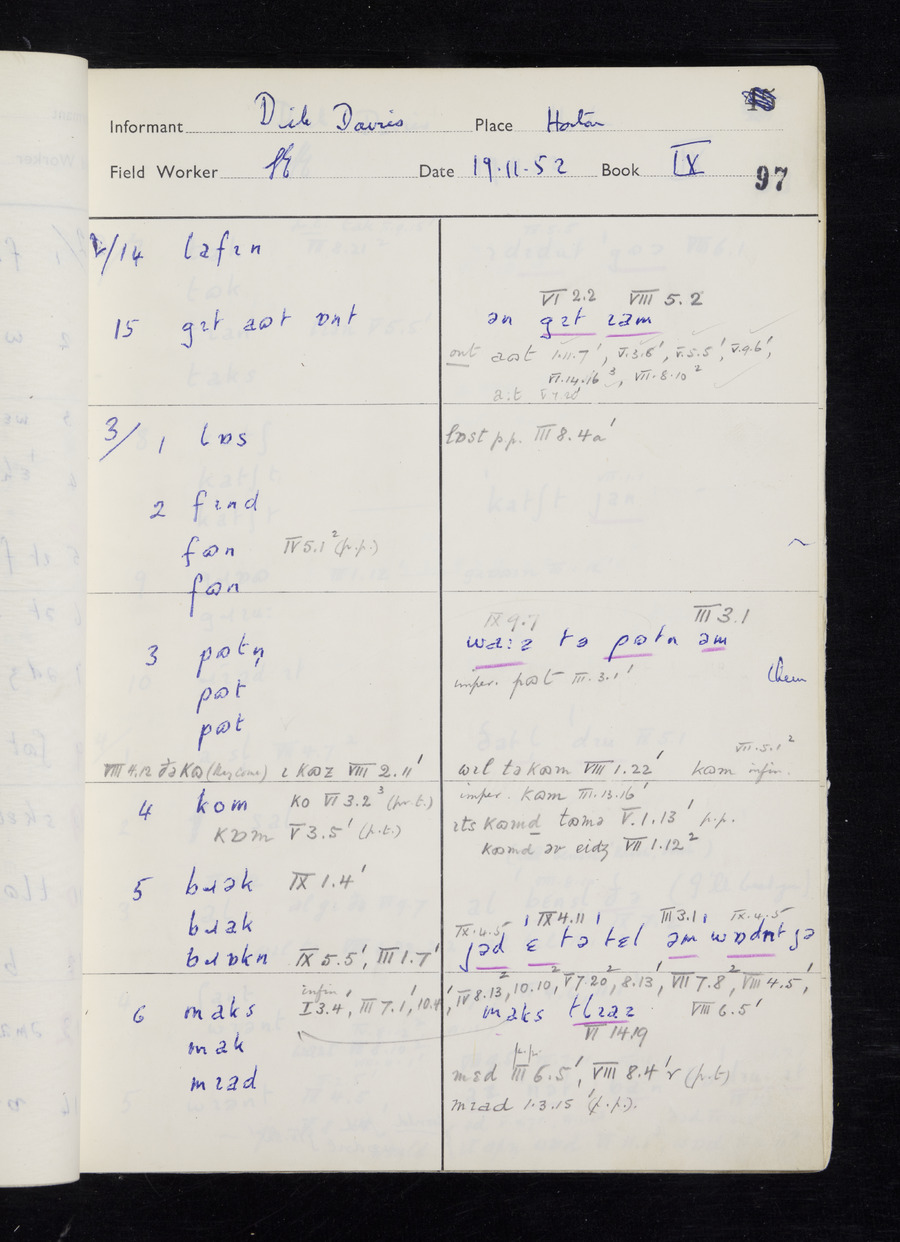 Informant Dick Davies Place Horton
Field Worker Date 19.11.52 Book IX
97
2/14 lafɪn
15 gɪt aʊt ɒnt
ən gɪt ɪəm
VI 2.2 VIII 5.2
out aʊt 1.11.7', V.3.6', V.5.5', V.9.6',
VI.14.16³, VII.8.10²
a:t V 7.20
3/1 lɒs
lost p.p. III 8.4a'
2 fɪnd
fʊn IV 5.1² (p.p.)
fʊn
3 pʊtn̩
pʊt
pʊt
IX 9.7 III 3.1
wa:z tə pʊtn əm
imper. pʊt III.3.1' them
VIII 4.12 ðə kʊ (they come) ɪ kʊz VIII 2.11'
wɪl tə kʊm VIII 1.22' kʊm infin. VII.5.1²
imper. kʊm III.13.16'
4 kom ko VI 3.2³ (pr.t.)
kɒm V 3.5' (p.t.)
ɪts kʊmd tʊmə V.1.13' p.p.
kʊmd əv eidʒ VII 1.12²
5 bɹək IX 1.4'
bɹak
bɹɒkn IX 5.5', III 1.7'
IX.4.5 IX 4.11 III 3.1 IX.4.5
jəd ɛ tə tɛl əm wɒdnt jə
6 maks infin I 3.4', III 7.1', 10.4', IV 8.13², 10.10², V 7.20², 8.13', VII 7.8², VIII 4.5',
mak
mɪad
maks tlɪəz VIII 6.5'
VI 14.19
mɛd p.p. III 6.5', VIII 8.4'r (p.t)
mɪad 1.3.15' (p.p.).